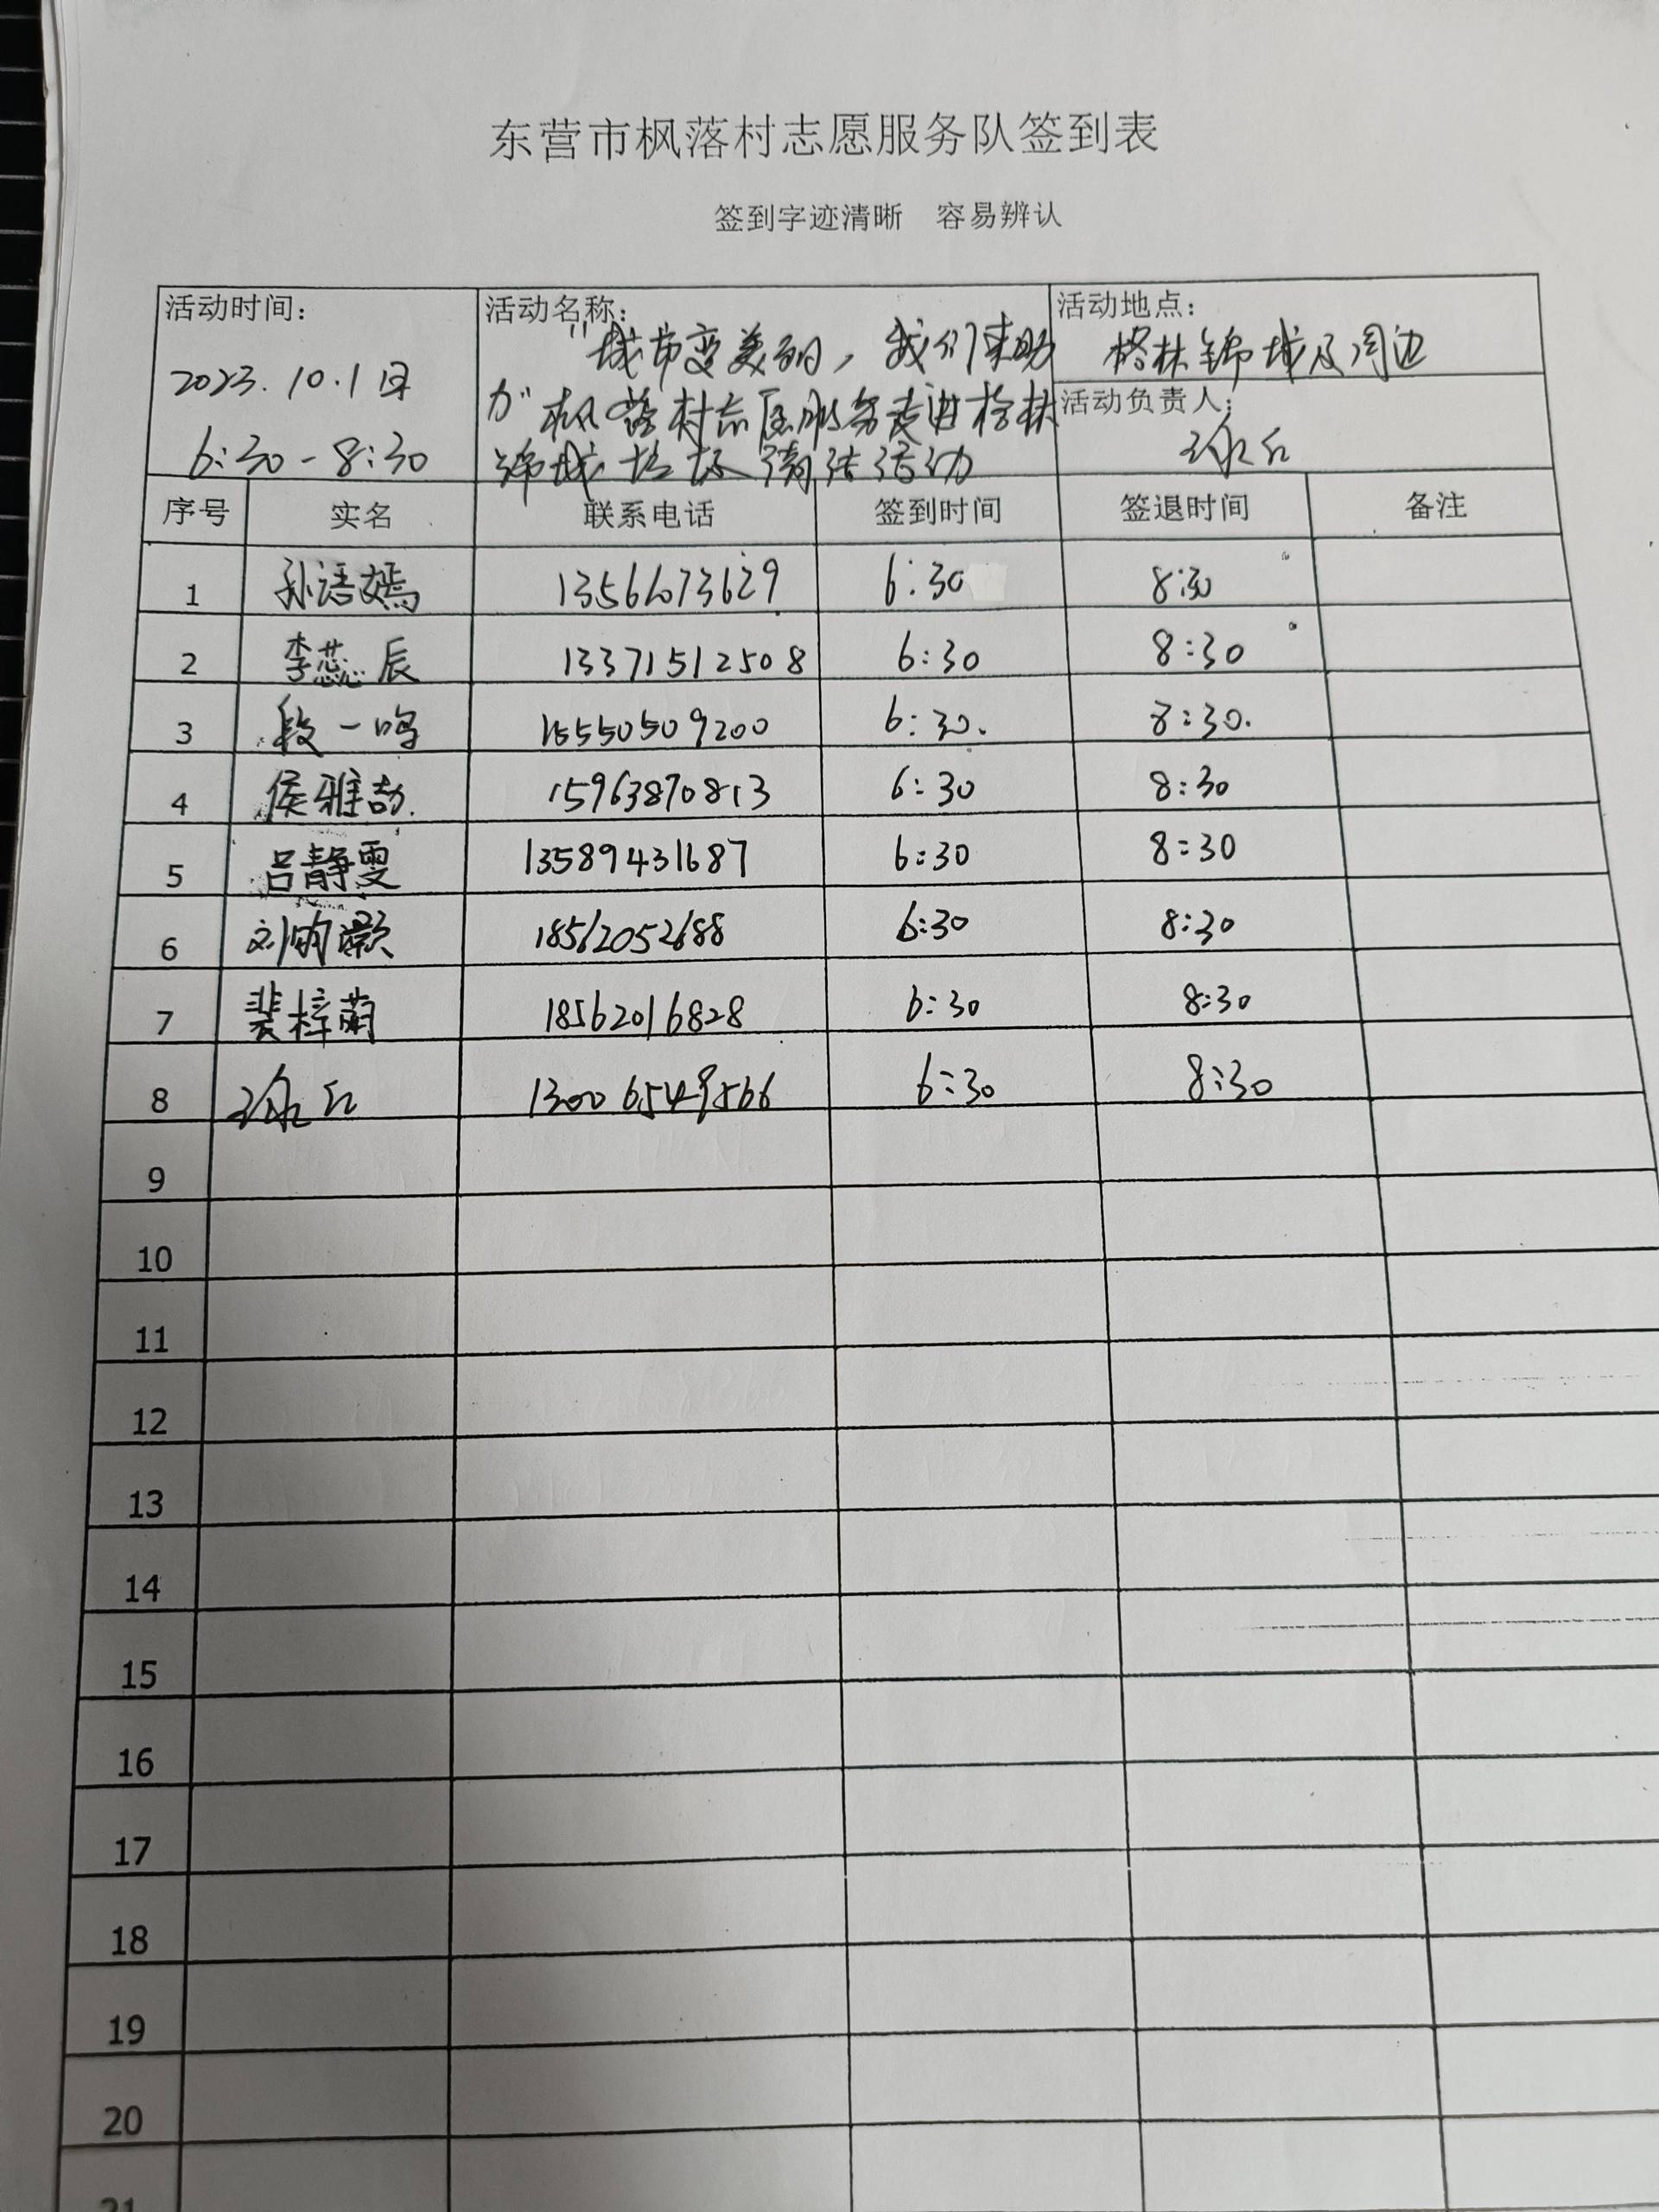 东营市枫落村志愿服务队签到表
签到字迹清晰 容易辨认
活动时间: 活动名称: 活动地点:
"城市变美的,我们来助 格林锦城及周边
2023.10.1日 力"枫落村志愿服务走进格林 活动负责人:
6:30-8:30 锦城垃圾清洁活动
序号 实名 联系电话 签到时间 签退时间 备注
1 孙语嫣 13561073629 6:30 8:30
2 李蕊辰 13371512508 6:30 8:30
3 段一鸣 15550509200 6:30. 8:30.
4 侯雅喆. 15963870813 6:30 8:30
5 吕静雯 13589431687 6:30 8:30
6 刘明灏 18562052688 6:30 8:30
7 裴梓萌 18562016828 6:30 8:30
8 13006549566 6:30 8:30
9
10
11
12
13
14
15
16
17
18
19
20
21